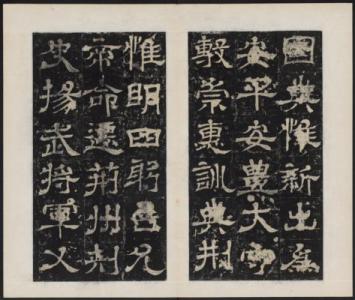 國典惟新出為
安平安豊大守
敷崇惠訓典刑
惟明四允
帝命遷荊州刺
史揚武將軍又